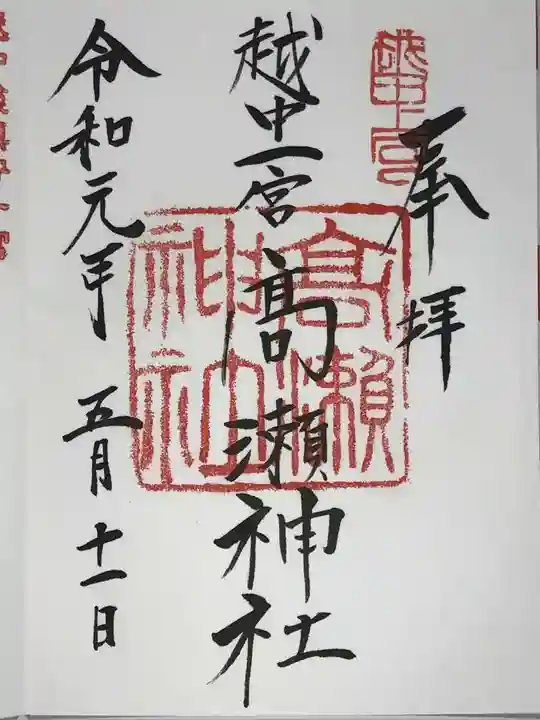 奉拝
越中一宮
越中一宮高瀬神社
高瀬神社
令和元年五月十一日